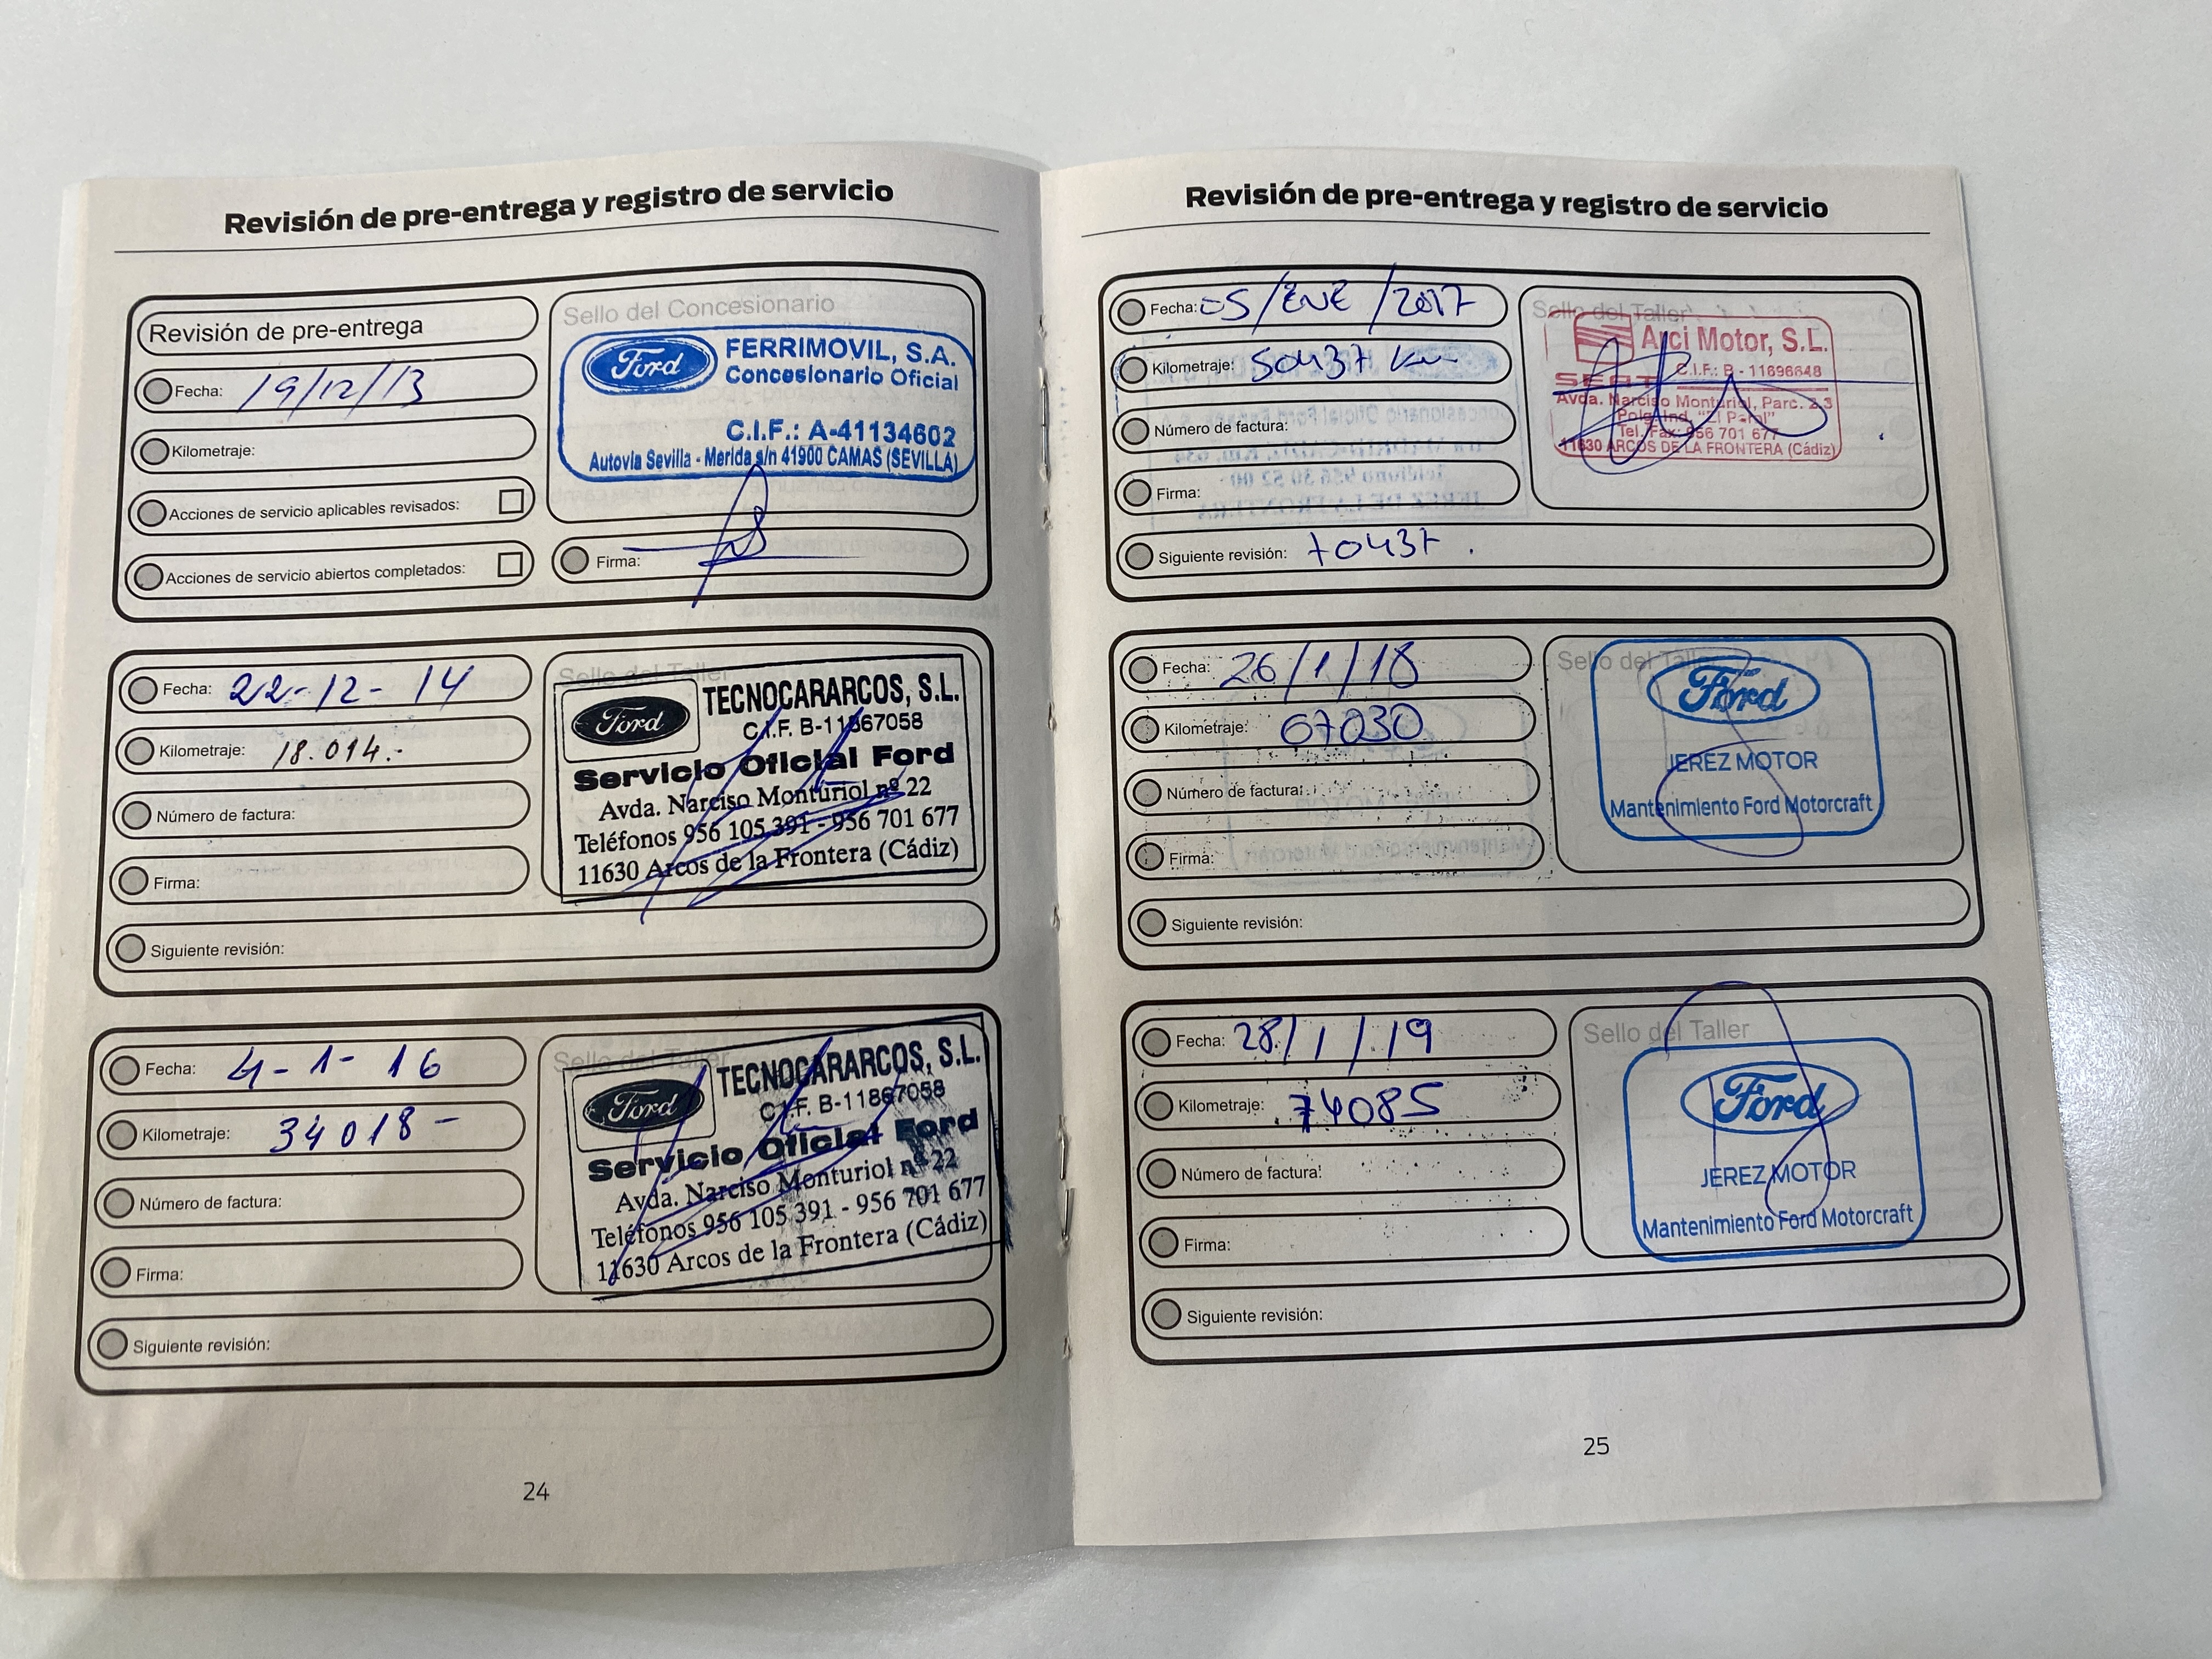 Revisión de pre-entrega y registro de servicio
Revisión de pre-entrega
Fecha: 19/12/13
Kilometraje:
Acciones de servicio aplicables revisados:
Acciones de servicio abiertos completados:
Sello del Concesionario
Ford
FERRIMOVIL, S.A.
Concesionario Oficial
C.I.F.: A-41134602
Autovia Sevilla - Merida s/n 41900 CAMAS (SEVILLA)
Firma:
Fecha: 22-12-14
Kilometraje: 18.014.-
Número de factura:
Firma:
Siguiente revisión:
Sello del Taller
Ford
TECNOCARARCOS, S.L.
C.I.F. B-11867058
Servicio Oficial Ford
Avda. Narciso Monturiol nº 22
Teléfonos 956 105 391 - 956 701 677
11630 Arcos de la Frontera (Cádiz)
Fecha: 4-1-16
Kilometraje: 34018-
Número de factura:
Firma:
Siguiente revisión:
Sello del Taller
Ford
TECNOCARARCOS, S.L.
C.I.F. B-11867058
Servicio Oficial Ford
Avda. Narciso Monturiol nº 22
Teléfonos 956 105 391 - 956 701 677
11630 Arcos de la Frontera (Cádiz)
24
Revisión de pre-entrega y registro de servicio
Fecha: 05/ENE/2017
Kilometraje: 50437 Km
Número de factura:
Firma:
Siguiente revisión: 70437.
Sello del Taller
Arci Motor, S.L.
SEAT C.I.F.: B - 11696648
Avda. Narciso Monturiol, Parc. 2.3
Polg. Ind. "El Peral"
Tel./Fax: 956 701 677
11630 ARCOS DE LA FRONTERA (Cádiz)
Fecha: 26/1/18
Kilometraje: 67030
Número de factura:
Firma:
Siguiente revisión:
Sello del Taller
Ford
JEREZ MOTOR
Mantenimiento Ford Motorcraft
Fecha: 28/1/19
Kilometraje: 74085
Número de factura:
Firma:
Siguiente revisión:
Sello del Taller
Ford
JEREZ MOTOR
Mantenimiento Ford Motorcraft
25